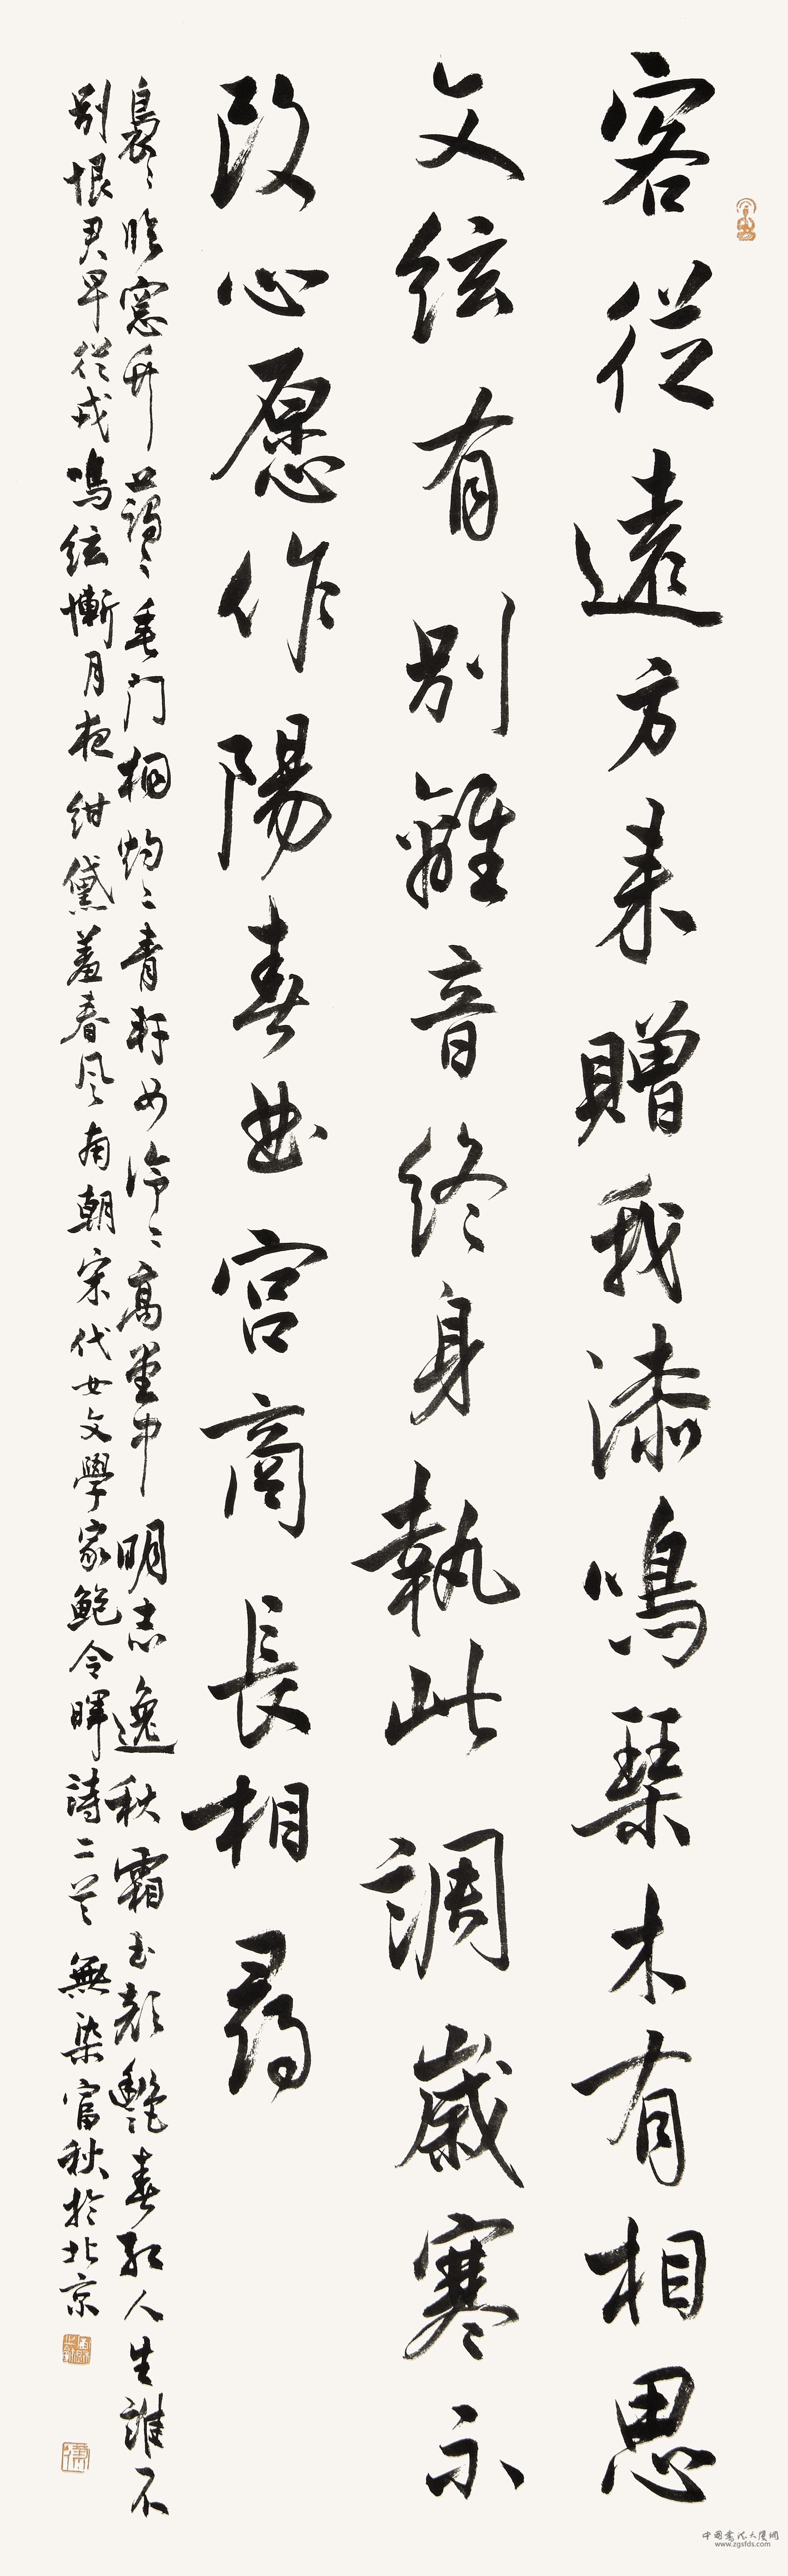 客從遠方来贈我漆鳴琹木有相思
文弦有别離音終身執此調歲寒不
改心愿作陽春曲宫商長相尋
裊〻臨窓竹藹〻垂門桐灼〻青軒女泠〻高堂中明志逸秋霜玉顔艷春紅人生誰不
别恨君早從戎鳴弦慚月夜紺黛羞春风南朝宋代女文學家鮑令暉詩二首無染富秋於北京
中國書法大厦網
www.zgsfds.com